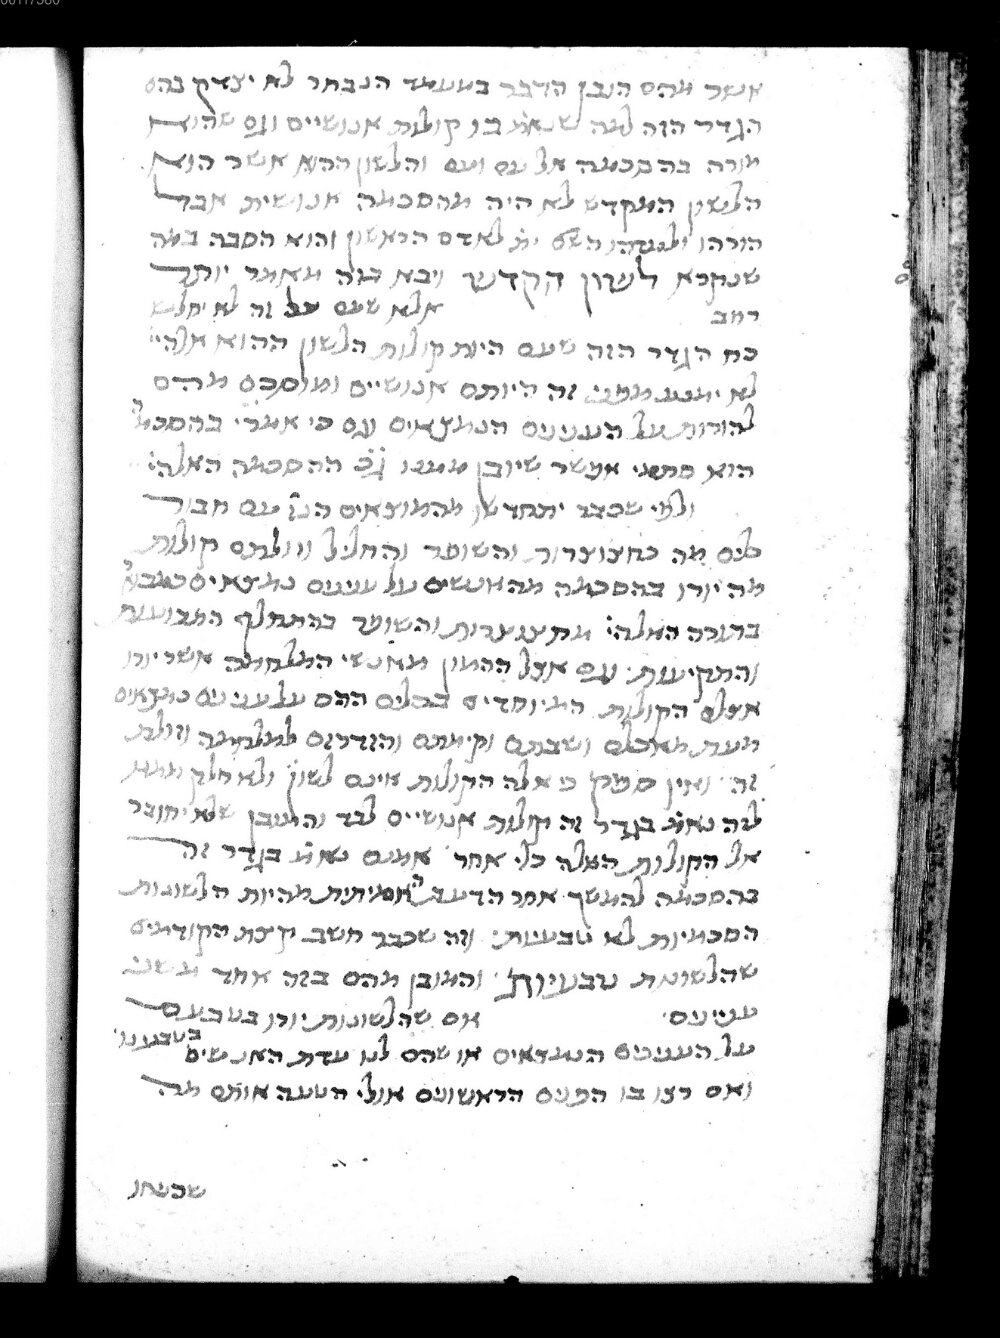 אשר מהם הובן הדבר במעמד הנבחר לא יצדק בהם
הגדר הזה למה שנאמ' בו קולות אנושיים וגם שהוא
מורה בהסכמה אל עם ועם והלשון ההוא אשר הוא
הלשון המקדש לא היה מהסכמה אנושית אבל
הורהו ולמדהו השם ית' לאדם הראשון והוא הסבה במה
שנקרא לשון הקדש ויבא בזה מאמר יותר
רחב אלא שעם כל זה לא יחלש
כח הגדר הזה שעם היות קולות הלשון ההוא אלהיי
לא ימנע ממנו זה היותם אנושיים ומוסכם מהם
להורות על הענינים הנמצאים וגם כי אמרי בהסכמה
הוא סתמי אפשר שיובן ממנו ג"כ ההסכמה האלהי'
ולפי שכבר יתחדשו מהמוצאים הנז' עם חבור
כלים מה כחצוצרות והשופר והחליל וזולתם קולות
מה יורו בהסכמה מהאנשים על ענינים נמצאים כמבוא'
בתורה האלהי' מחצוצרות והשופר בהתחלף התנועות
והתקיעות. גם אצל ההמון מאנשי המלחמה אשר יורו
אצלם הקולות המיוחדים בכלים ההם על ענינים נמצאים
מעת מאכלם ושבתם וקימתם והזדרזם למלחמה וזולת
זה ואין ספק כי אלה הקולות אינם לשון ולא חלק ממנו
לזה נאמ' בגדר זה קולות אנושיים לבד והמובן שלא יחובר
אל הקולות האלה כלי אחר אמנם נאמ' בגדר זה
בהסכמה להמשך אחר הדעת האמיתית מהיות הלשונות
הסכמיות לא טבעיות. וזה שכבר חשב קצת הקודמים
שהלשונות טבעיות. והמובן מהם בזה אחד משני
עניינים. אם שהלשונות יורו בטבעם
על הענינים הנמצאים או שהם לנו עדת האנשים בטבענו.
ואם רצו בו הפנים הראשונים אולי הטעה אותם מה
שמצאו